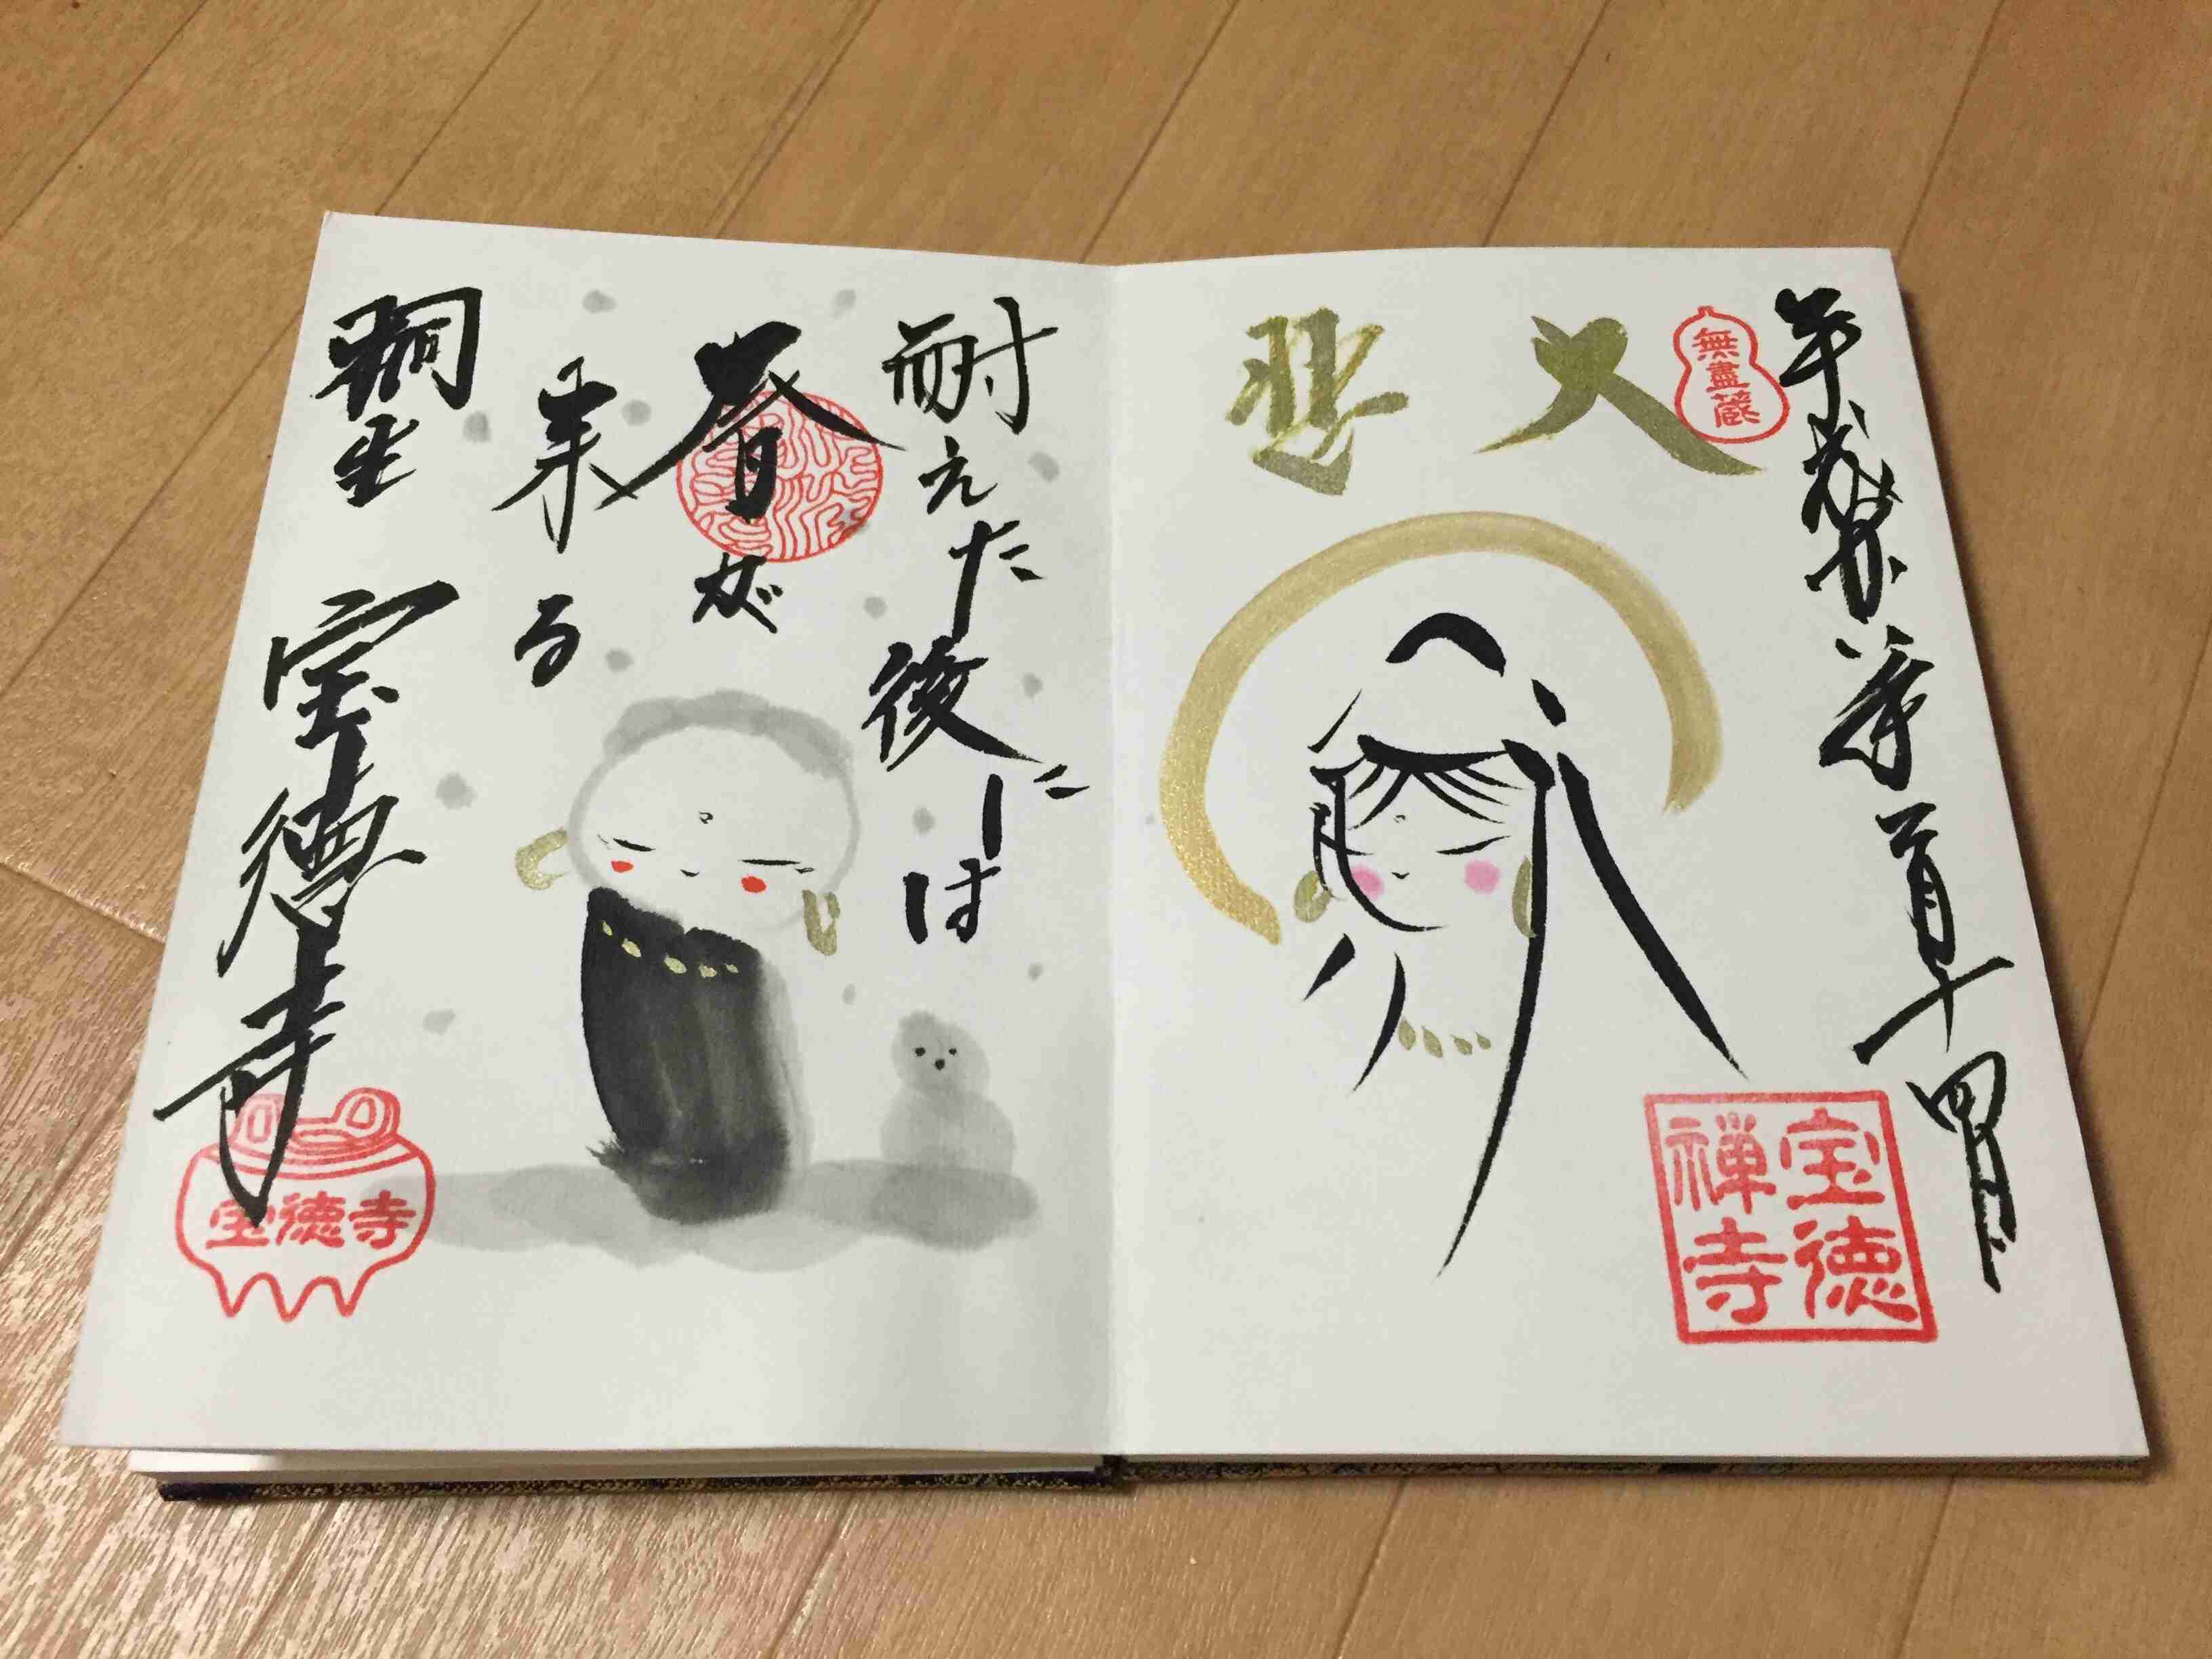 平成年一月十四日
無盡蔵
大悲
宝徳
禅寺
耐えた後には
春が
来る
桐生 宝徳寺
宝徳寺